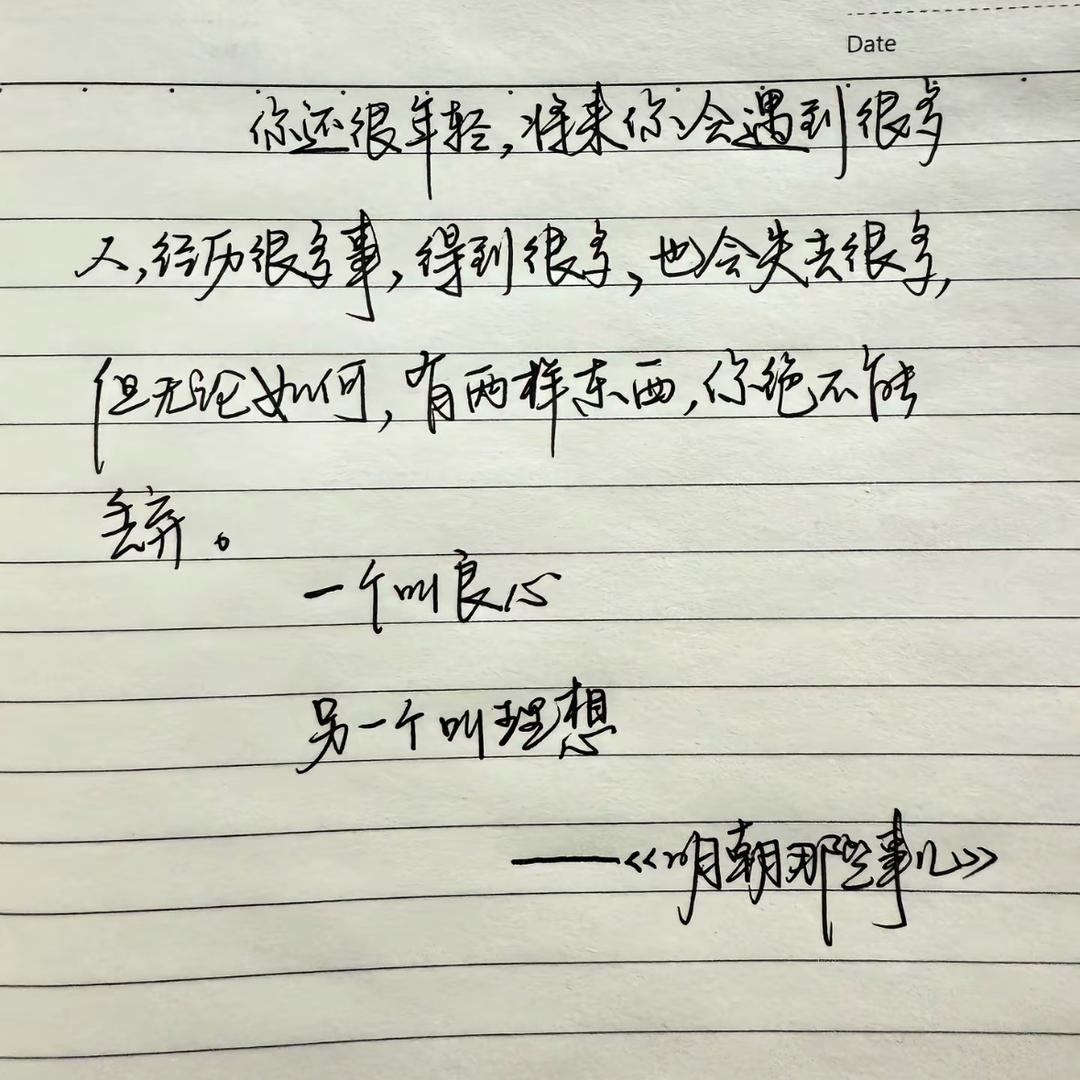 Date
你还很年轻,将来你会遇到很多
人,经历很多事,得到很多,也会失去很多,
但无论如何,有两样东西,你绝不能
丢弃。
一个叫良心
另一个叫理想
——《明朝那些事儿》